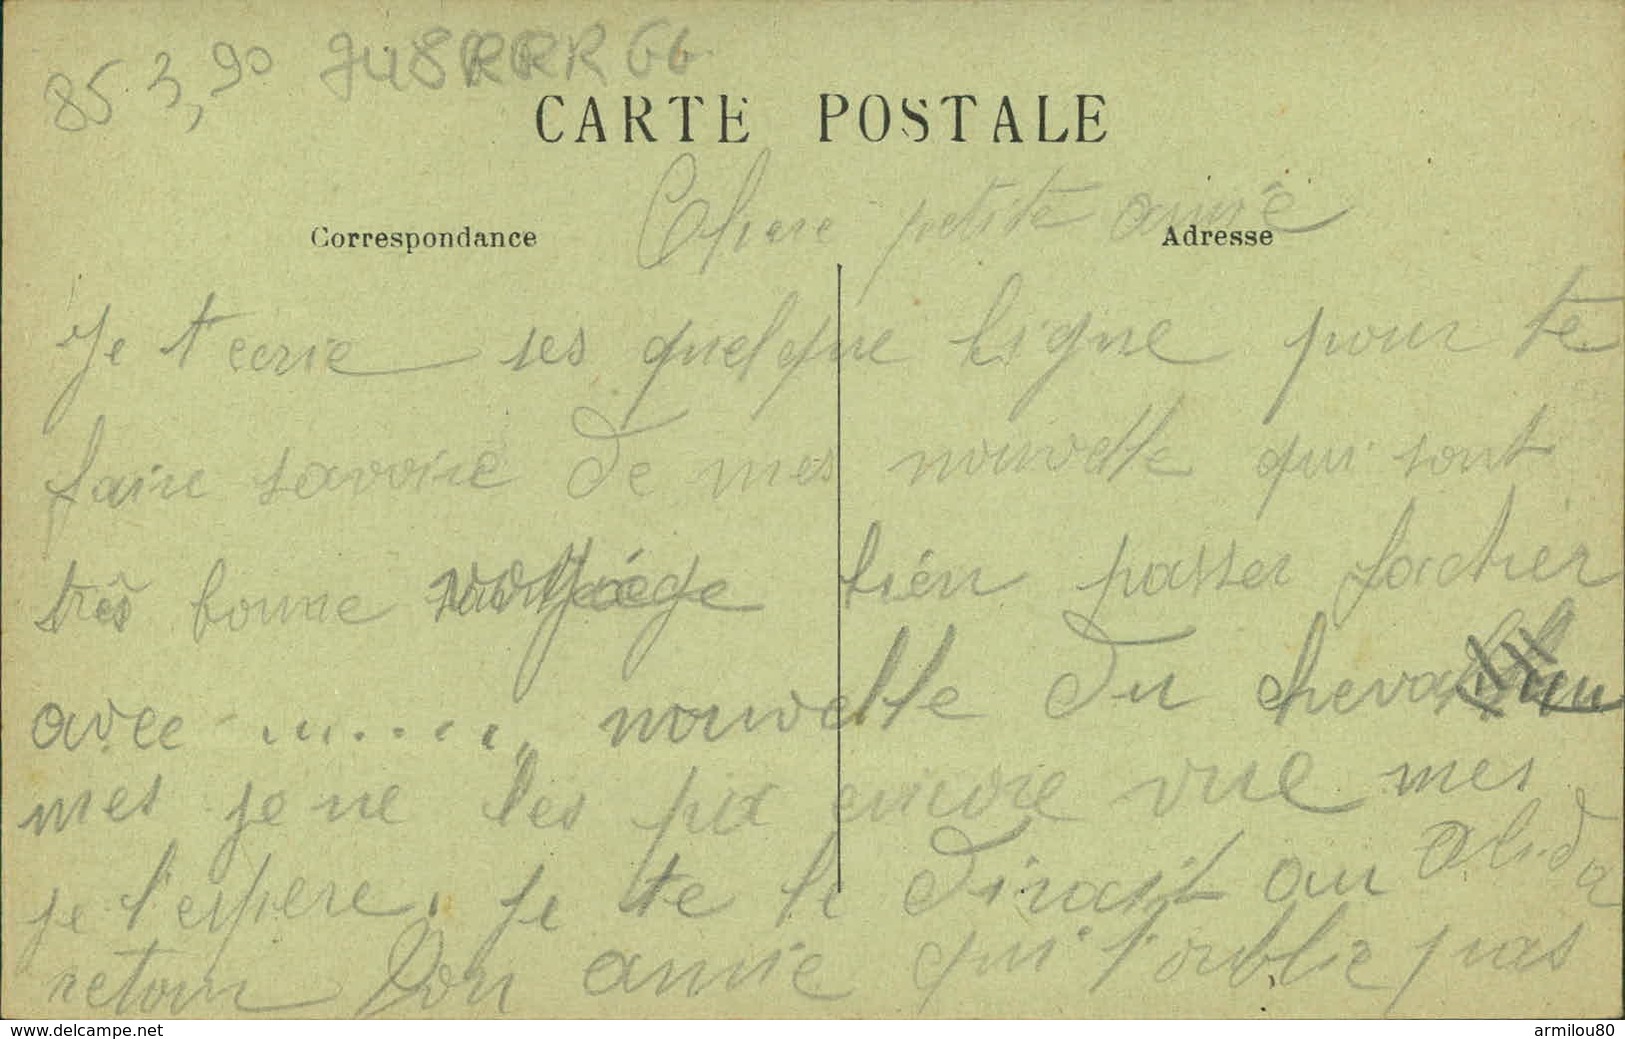 85 3,90
CARTE POSTALE
Chere petite amie
Correspondance
Adresse
Je t'ecrie ses quelque ligne pour te
faire savoire de mes nouvelle qui sont
très bonne voyage bien passer
avec ........ nouvelle du cheval
mes je ne les pa encore vue mes
je l'espere, je te le dirait au
retour Ton amie qui t'oublie pas
Alida
www.delcampe.net
armilou80